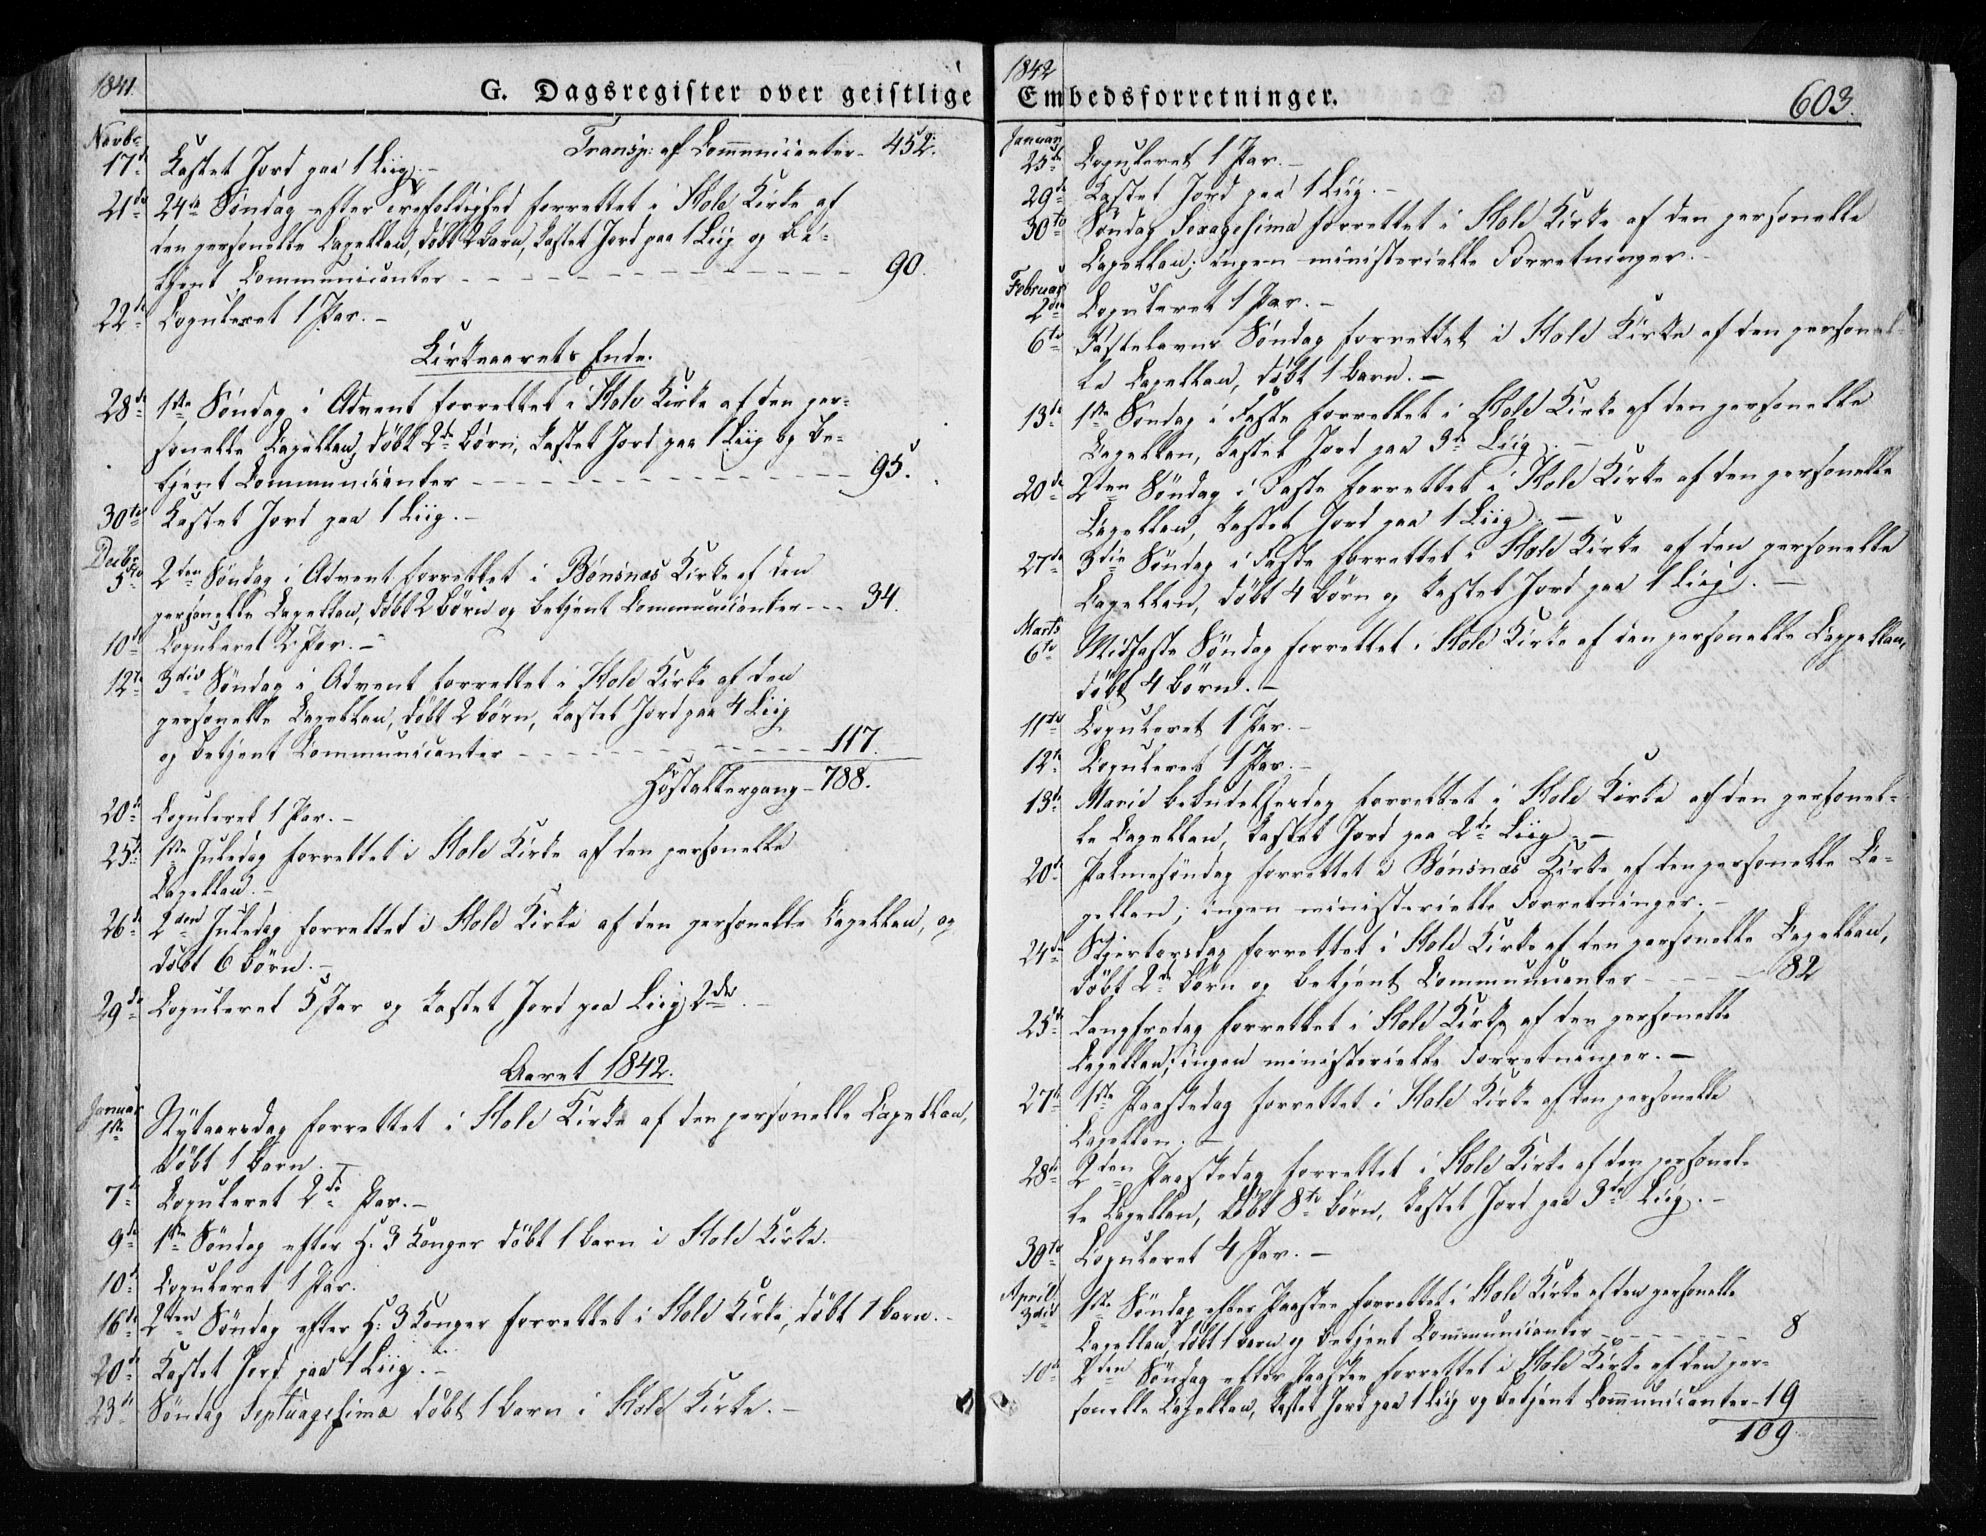 1841.
G. Dagsregister over geistlige
Novbr
Transp: af Communicanter - 452.
17de Kastet Jord paa 1 Liig. -
21de 24de Søndag efter Trefoldighed forrettet i Hole Kirke af
den personelle Capellan, døbt 2 Barn, kastet Jord paa 1 Liig og be-
tjent Communicanter - - - 90.
22de Copuleret 1 Par. -
Kirkeaarets Ende.
28de 1ste Søndag i Advent forrettet i Hole Kirke af den per-
sonelle Capellan, døbt 2de Børn, kastet Jord paa 1 Liig og be-
tjent Communicanter - - - 95.
30te Kastet Jord paa 1 Liig. -
Decbr
5te 2den Søndag i Advent forrettet i Bønsnæs Kirke af den
personelle Capellan, døbt 2 Børn og betjent Communicanter - - - 34.
10de Copuleret 2 Par. -
12te 3die Søndag i Advent forrettet i Hole Kirke af den
personelle Capellan, døbt 2 Børn, kastet Jord paa 4 Liig
og betjent Communicanter - - - 117.
Høstaltergang - 788.
20de Copuleret 1 Par. -
25de 1ste Juledag forrettet i Hole Kirke af den personelle
Capellan. -
26de 2den Juledag forrettet i Hole Kirke af den personelle Capellan, og
døbt 6 Børn. -
29de Copuleret 5 Par og kastet Jord paa Liig 2de. -
Aaret 1842.
Januar
1ste Nytaarsdag forrettet i Hole Kirke af den personelle Capellan,
døbt 1 Barn. -
7de Copuleret 2de Par. -
9de 1ste Søndag efter H. 3 Konger døbt 1 Barn i Hole Kirke.
10de Copuleret 1 Par.
16de 2den Søndag efter H: 3 Konger forrettet i Hole Kirke, døbt 1 Barn. -
20de Kastet Jord paa 1 Liig. -
23de Søndag Septuagesima døbt 1 Barn i Hole Kirke. -
1842
Embedsforretninger.
603.
Januar
25de Copuleret 1 Par. -
29de Kastet Jord paa 1 Liig. -
30te Søndag Sexagesima forrettet i Hole Kirke af den personelle
Capellan; ingen ministerielle Forretninger. -
Februar
2den Copuleret 1 Par. -
6te Fastelavns Søndag forrettet i Hole Kirke af den personel-
le Capellan, døbt 1 Barn. -
13de 1ste Søndag i Faste forrettet i Hole Kirke af den personelle
Capellan, kastet Jord paa 3de Liig. -
20de 2den Søndag i Faste forrettet i Hole Kirke af den personelle
Capellan, kastet Jord paa 1 Liig. -
27de 3die Søndag i Faste forrettet i Hole Kirke af den personelle
Capellan, døbt 4 Børn og kastet Jord paa 1 Liig. -
Marts
6te Midfaste Søndag forrettet i Hole Kirke af den personelle Cappellan,
døbt 4 Børn. -
11te Copuleret 1 Par. -
12te Copuleret 1 Par. -
13de Mariæ Bebudelsesdag forrettet i Hole Kirke af den personel-
le Capellan, kastet Jord paa 2de Liig. -
20de Palmesøndag forrettet i Bønsnæs Kirke af den personelle Ca-
pellan; ingen ministerielle Forretninger. -
24de Skjertorsdag forrettet i Hole Kirke af den personelle Capellan,
døbt 2de Børn og betjent Communicanter - - - 82
25de Langfredag forrettet i Hole Kirke af den personelle
Capellan; ingen ministerielle Forretninger. -
27de 1ste Paaskedag forrettet i Hole Kirke af den personelle
Capellan. -
28de 2den Paaskedag forrettet i Hole Kirke af den personel-
le Capellan, døbt 8te Børn, kastet Jord paa 3de Liig. -
30te Copuleret 4 Par. -
April
3die 1ste Søndag efter Paaske forrettet i Hole Kirke af den personelle
Capellan, døbt 1 Barn og betjent Communicanter - - - 8
10de 2den Søndag efter Paaske forrettet i Hole Kirke af den per-
sonelle Capellan, kastet Jord paa 1 Liig og betjent Communicanter - 19
109.